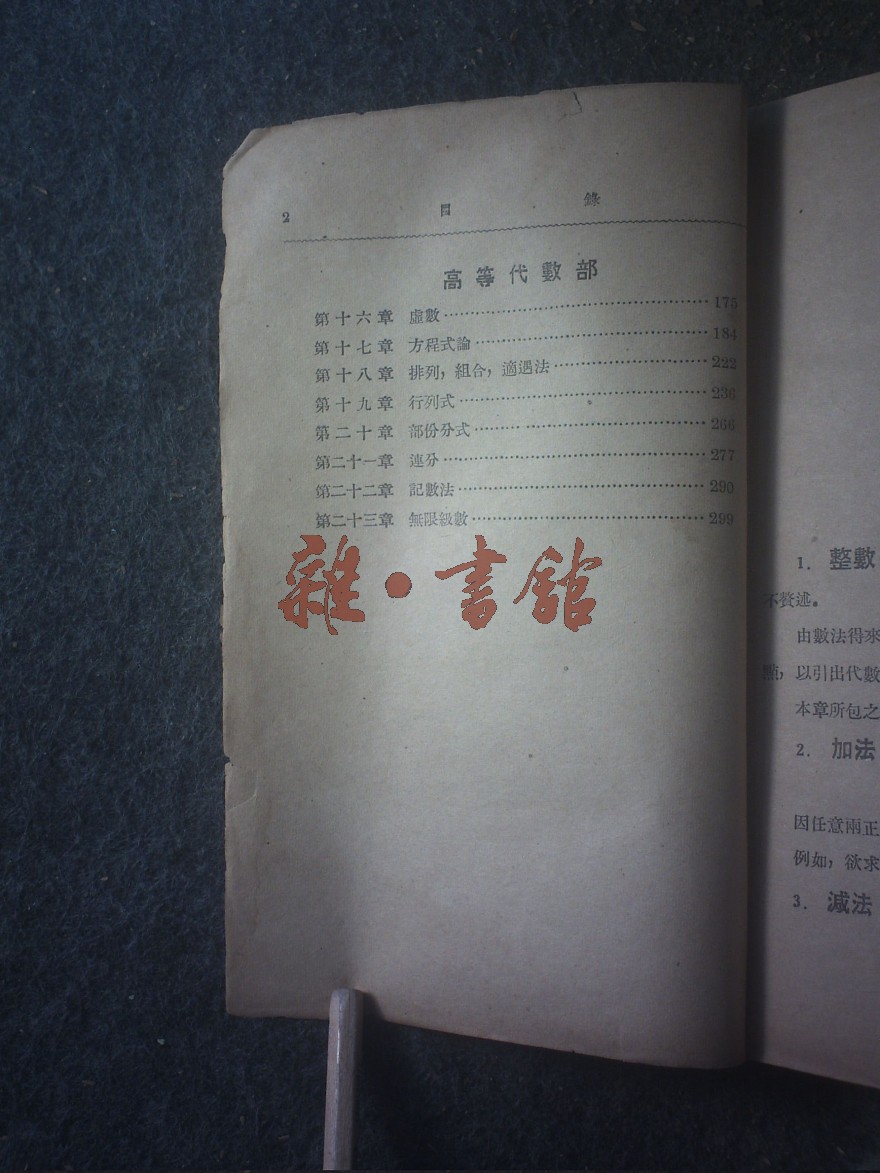 2 目 錄
高等代數部
第十六章 虛數 175
第十七章 方程式論 184
第十八章 排列，組合，適遇法 222
第十九章 行列式 236
第二十章 部份分式 266
第二十一章 連分 277
第二十二章 記數法 290
第二十三章 無限級數 299
雜·書館
1. 整數
不贅述。
由數法得來
點，以引出代數
本章所包之
2. 加法
因任意兩正
例如，欲求
3. 減法